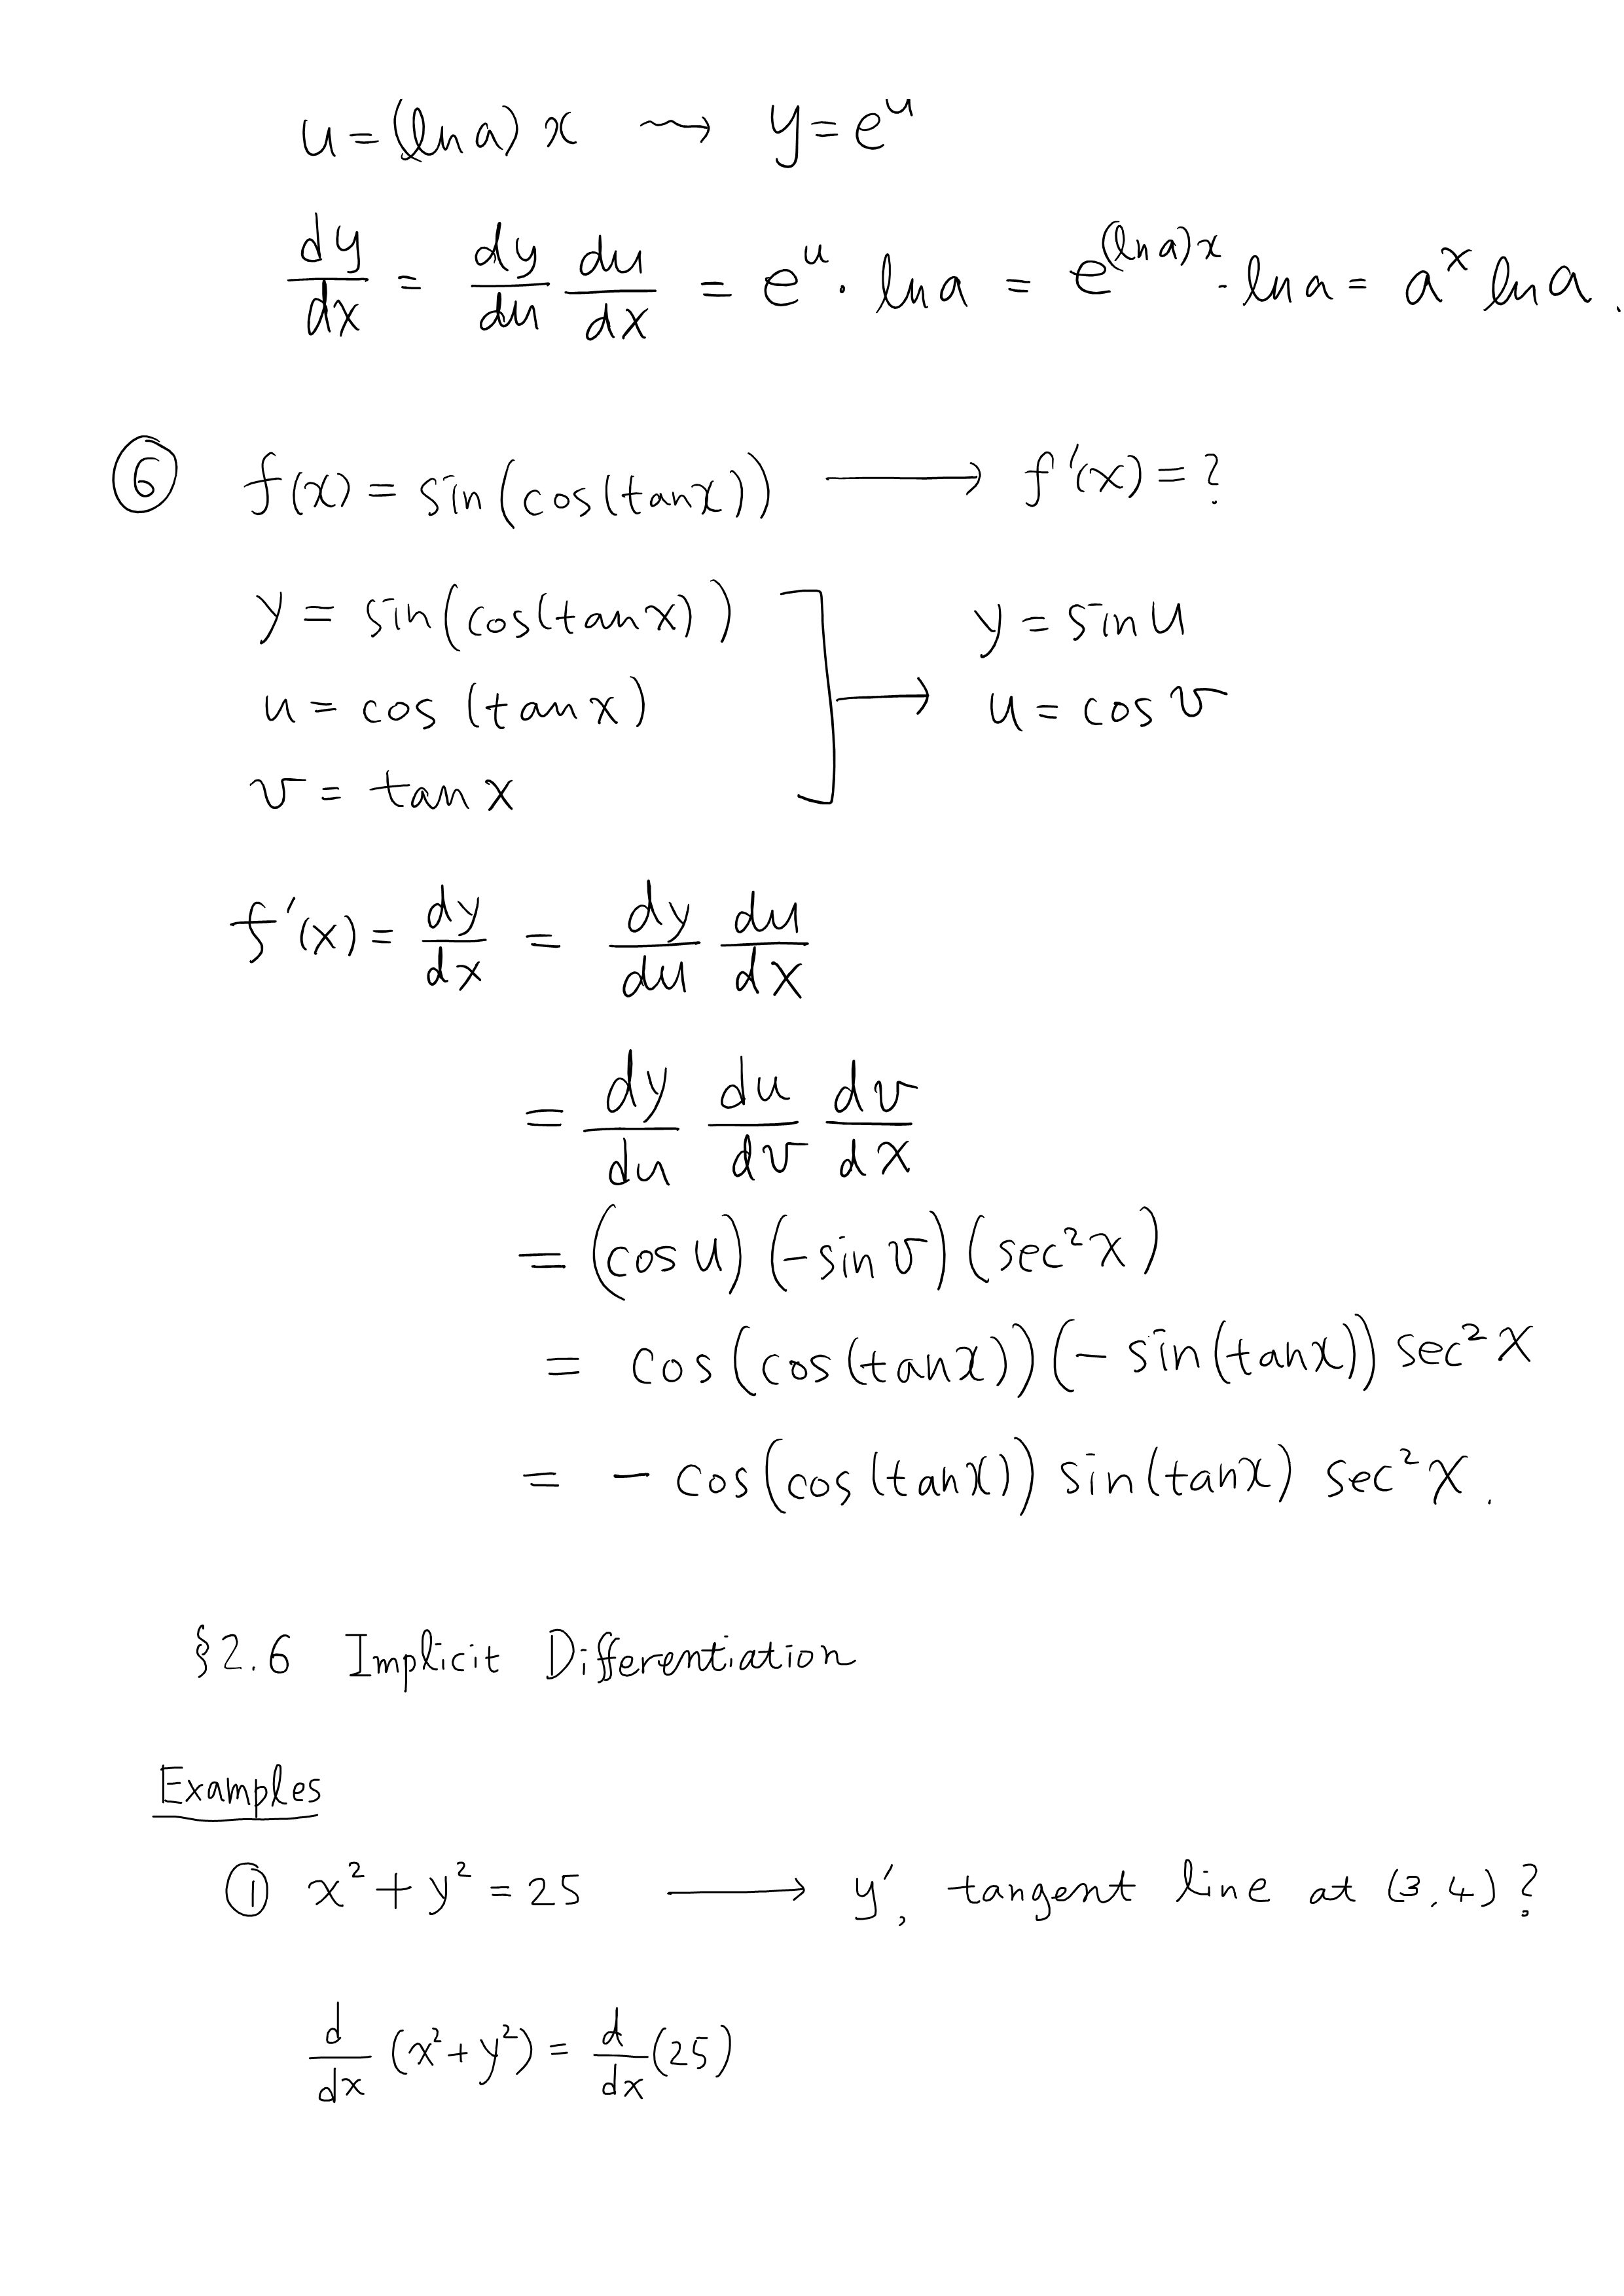 u = (ln a) x ⇝ y = e^u
dy/dx = dy/du du/dx = e^u · ln a = e^{(ln a)x} · ln a = a^x ln a.
⑥ f(x) = sin(cos(tan x)) ⟶ f'(x) = ?
y = sin(cos(tan x))
u = cos (tan x)
v = tan x
⟶ y = sin u
u = cos v
f'(x) = dy/dx = dy/du du/dx
= dy/du du/dv dv/dx
= (cos u) (-sin v) (sec² x)
= cos(cos(tan x)) (- sin(tan x)) sec² x
= - cos(cos(tan x)) sin(tan x) sec² x.
§2.6 Implicit Differentiation
Examples
① x² + y² = 25 ⟶ y', tangent line at (3,4) ?
d/dx (x² + y²) = d/dx (25)